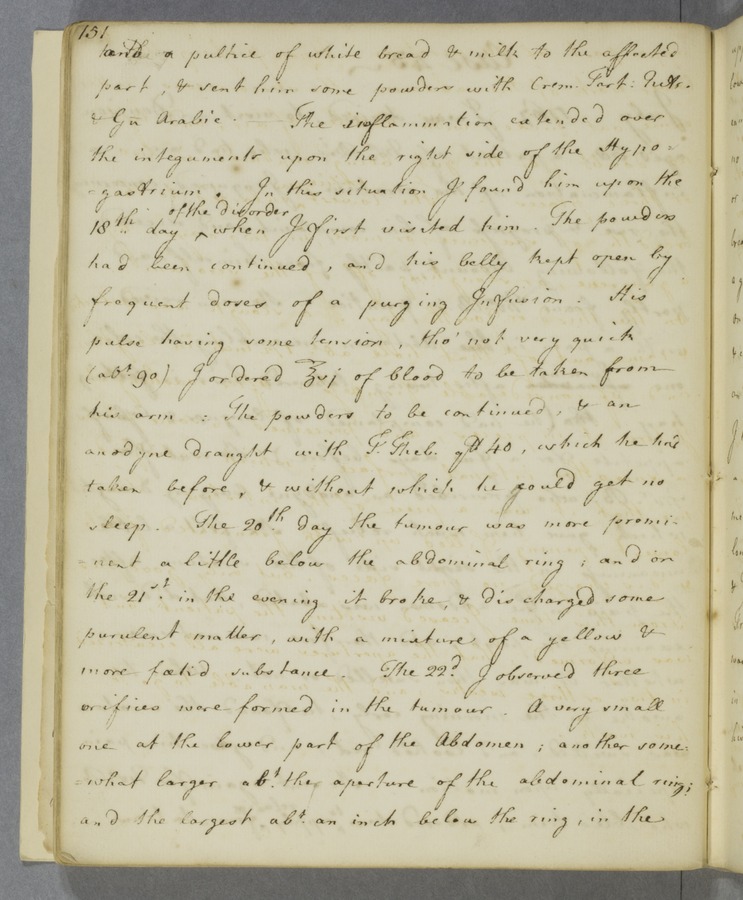 151
a pultice of white bread & milk to the affected
part, & sent him some powders with Crem. Tart: Nitr.
& Gm̄ Arabic. — The inflammation extended over
the integuments upon the right side of the Hypo=
=gastrium. In this situation I found him upon the
of the disorder
18th day ‸ when I first visited him. The powders
had been continued, and his belly kept open by
frequent doses of a purging Infusion. His
pulse having some tension, tho' not very quick
(abt. 90) I ordered ℥vj of blood to be taken from
his arm: The powders to be continued, & an
anodyne draught with T. Theb. gtt 40, which he had
taken before, & without which he could get no
sleep. The 20th day the tumour was more promi-
=nent a little below the abdominal ring; and on
the 21st. in the evening it broke, & discharged some
purulent matter, with a mixture of a yellow &
more fœtid substance. The 22d I observed three
orifices were formed in the tumour. A very small
one at the lower part of the Abdomen; another some=
=what larger abt. the aperture of the abdominal ring;
and the largest abt. an inch below the ring, in the